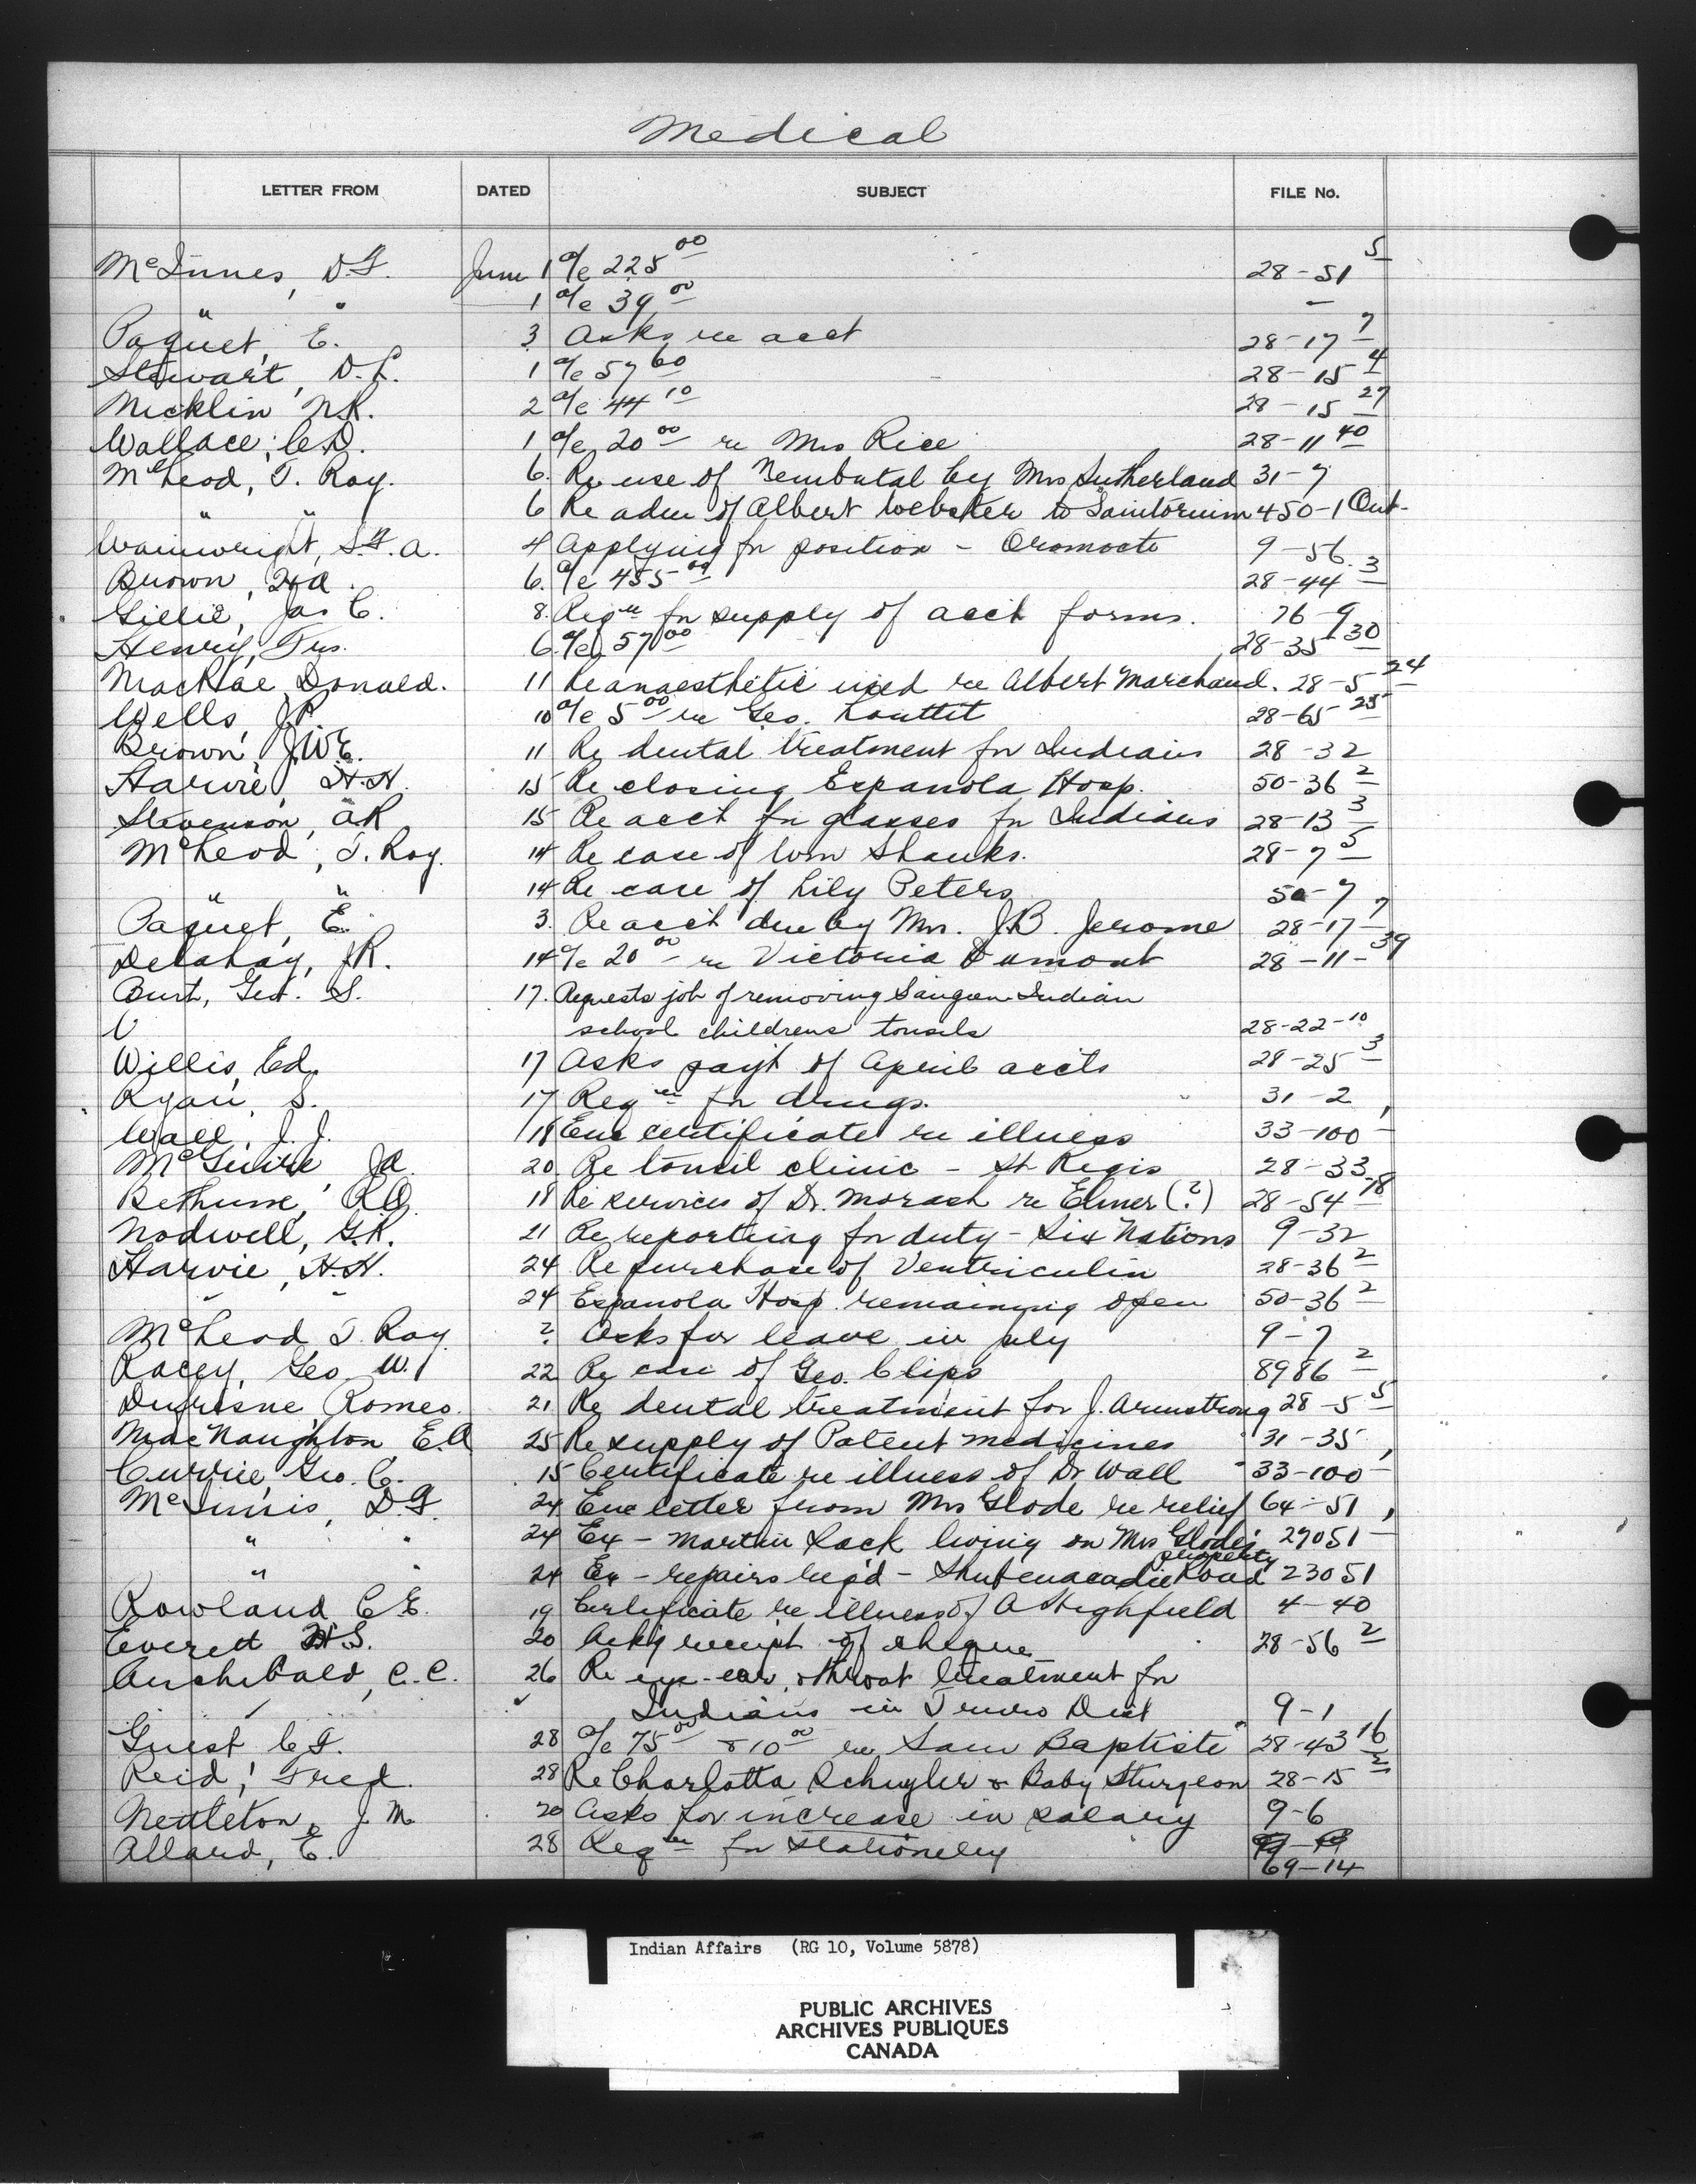 Medical
LETTER FROM DATED SUBJECT FILE No.
McInnes, D.F. June 1 a/c 225 00 28-51 5
" " 1 a/c 39 00 –
Paquet, E. 3 Asks re acct 28-17 7
Stewart, D.L. 1 a/c 57 60 28-15 4
Nicklin N.R. 2 a/c 44 10 28-15 27
Wallace, C.D. 1 a/c 20 00 re Mrs Rice 28-11 40
McLeod, J. Roy. 6. Re use of Nembutal by Mrs Sutherland 31-7
" " 6 Re adm of Albert Webster to Sanitorium 450-1 Ont-
Wainwright, S.F.A. 4 Applying for position - Oromocto 9-56
Brown, 6. a/c 455 00 28-44 3
Gillie, Jas C. 8. Reqn for supply of acct forms. 76-9
Henry, 6. a/c 57 00 28-35 30
MacRae, Donald. 11 Re anaesthetic used re Albert Marchand. 28-5 24
Wells, J.P. 10 a/c 5 00 re Geo. Louttit 28-65 25
Brown, J.W.E. 11 Re dental treatment for Indians 28-32
Harvie, H.H. 15 Re closing Espanola Hosp. 50-36 2
Stevenson, A.R. 15 Re acct for glasses for Indians 28-13 3
McLeod, J. Roy. 14 Re case of Wm Shanks. 28-7 5
" " 14 Re care of Lily Peters 50-7
Paquet, E. 3. Re acct due by Mr. J.B. Jerome 28-17 7
Delahay, J.R. 14 a/c 20 00 re Victoria Dumont 28-11-39
Burt, Geo. S. 17. Requests job of removing Saugeen Indian
school childrens tonsils 28-22-10
Willis, Ed. 17 Asks payt of April accts 28-25 3
Ryan, S. 17 Reqn for drugs. 31-2
Wall, J.J. 18 Enc certificate re illness 33-100
McGuire, J.A. 20 Re tonsil clinic - St. Regis 28-33
Bethune, R.O. 18 Re services of Dr. Morash re Elmer (?) 28-54 18
Nodwell, G.R. 21 Re reporting for duty - Six Nations 9-32
Harvie, H.H. 24 Re purchase of Ventriculin 28-36 2
" " 24 Espanola Hosp. remaining open 50-36 2
McLeod J. Roy ? Asks for leave in july 9-7
Racey, Geo. W. 22 Re case of Geo. Clips 8986 2
Dufresne Romeo. 21 Re dental treatment for J. Armstrong 28-5 5
MacNaughton E.A 25 Re supply of Patent medicines 31-35
Currie, Geo. C. 15 Certificate re illness of Dr Wall 33-100
McInnis, D.F. 24 Enc letter from Mrs Glode re relief 64-51
" " 24 Ex - Martin Sack living on Mrs Glode's property 27051
" " 24 Ex - repairs req'd - Shubenacadie Road 23051
Rowland C.E. 19 Certificate re illness of A Highfield 4-40
Everett H.S. 20 Ack'g receipt of cheque 28-56 2
Archibald, C.C. 26 Re eye-ear, & throat treatment for
Indians in Truro Dist 9-1
Guest C.F. 28 a/c 75 00 & 10 00 re Sam Baptiste 28-43 16
Reid, Fred. 28 Re Charlotta Schuyler & Baby Sturgeon 28-15 2
Nettleton, J.M. 20 Asks for increase in salary 9-6
Allard, E. 28 Reqn for stationery
69-14
Indian Affairs (RG 10, Volume 5878)
PUBLIC ARCHIVES
ARCHIVES PUBLIQUES
CANADA